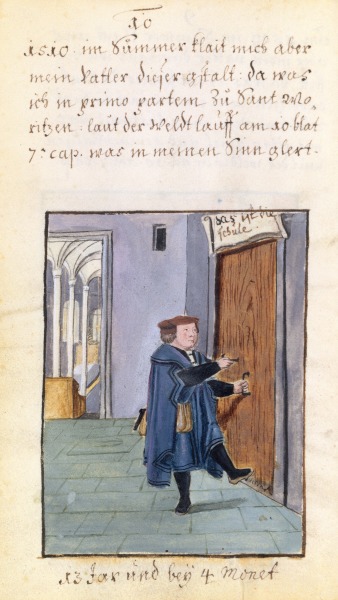 10
1510. im Summer klait mich aber
mein vatter dieser gstalt. da was
ich in primo partem zu Sant Mo-
ritzen. laut der weldt lauff am 10 blat
7. cap. was in meinen Sinn glert.
das ist die
schule.
13 Jar und bey 4 Monet